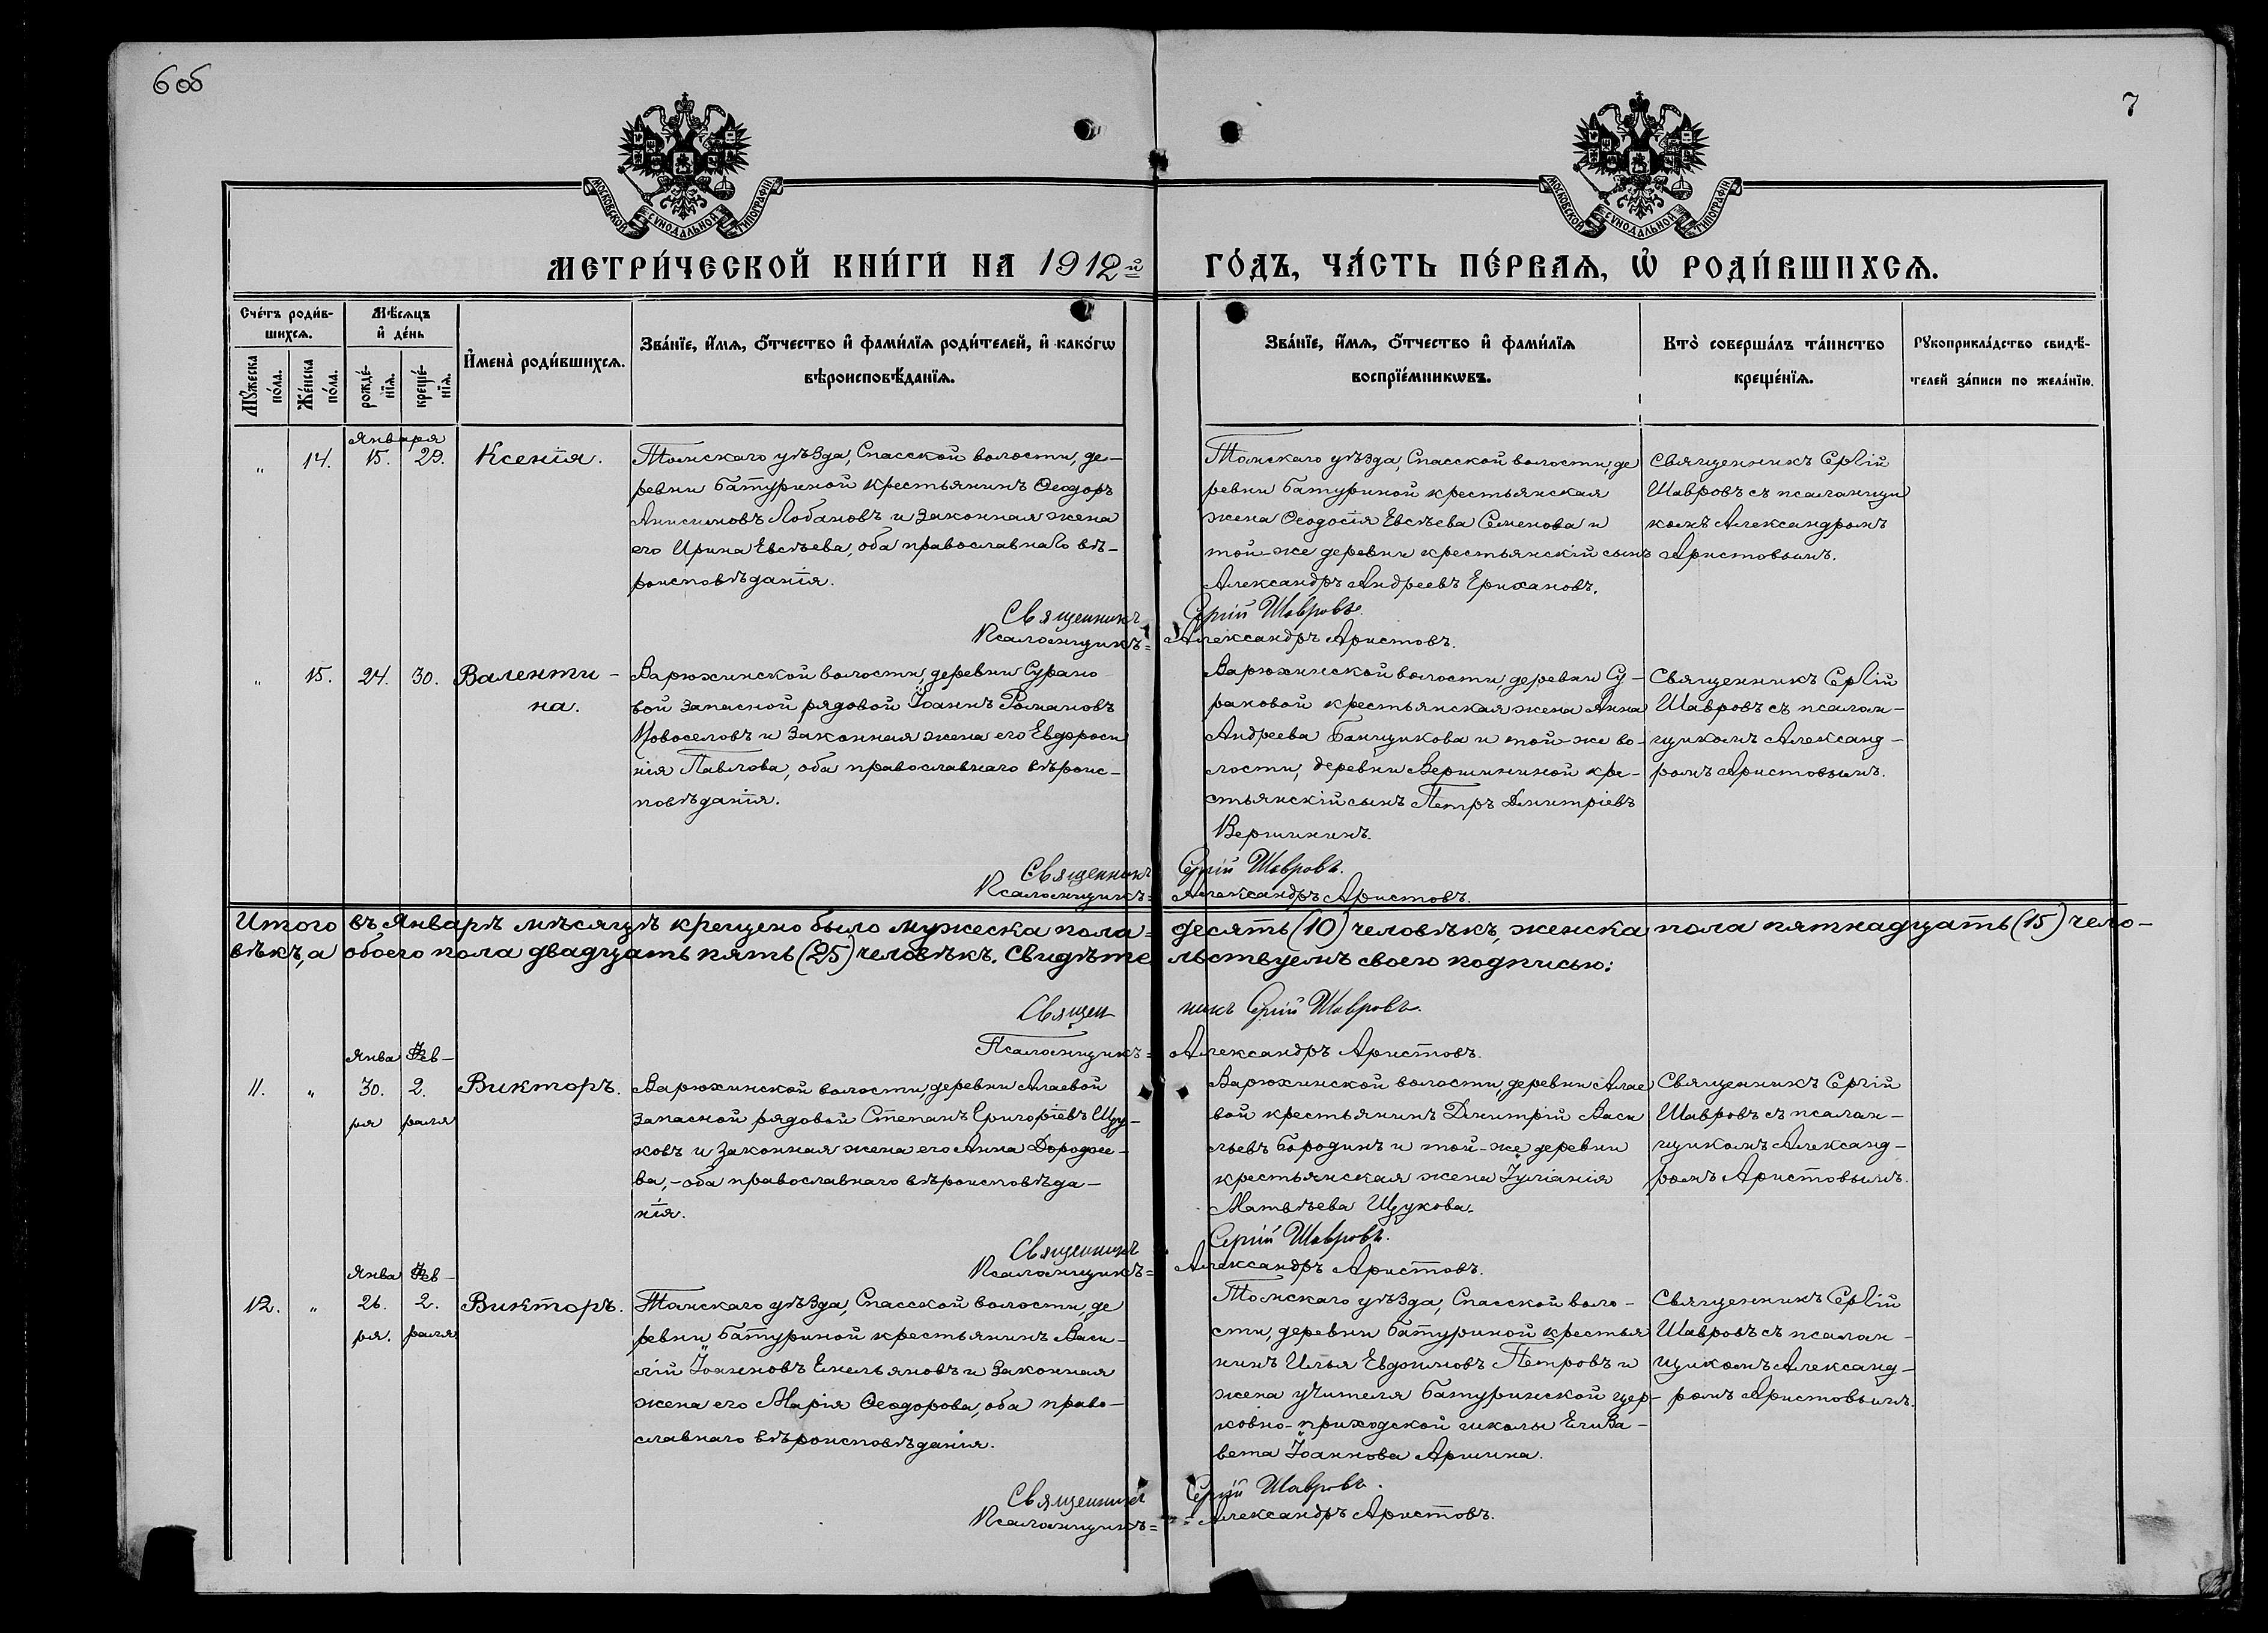 6 об
7
МОСКОВСКОЙ СѴНОДАЛЬНОЙ ТИПОГРАФІИ
МОСКОВСКОЙ СѴНОДАЛЬНОЙ ТИПОГРАФІИ
МЕТРИ́ЧЕСКОЙ КНИ́ГИ НА 1912й ГО́ДЪ, ЧА́СТЬ ПЕ́РВАѦ, Ѽ РОДИ́ВШИХСѦ.
Сче́тъ роди́в-
шихсѧ.
Мꙋ́жеска по́ла.
Же́нска по́ла.
Мѣ́сѧцъ
и҆ де́нь
рожде́-
нїѧ.
креще́-
нїѧ.
И҆мена̀ роди́вшихсѧ.
Зва́нїе, и҆́мѧ, ѻ҆́тчество и҆ фами́лїѧ роди́телей, и҆ како́гѡ
вѣроисповѣ́данїѧ.
Зва́нїе, и҆́мѧ, ѻ҆́тчество и҆ фами́лїѧ
воспрїе́мникѡвъ.
Кто̀ соверша́лъ та́инство
креще́нїѧ.
Рꙋкоприкла́дство свидѣ́-
телей за́писи по жела́нїю.
Января
„ 14. 15. 29. Ксенія.
Томскаго уѣзда, Спасской волости, де-
ревни Батуриной крестьянинъ Ѳеодоръ
Анисимовъ Лобановъ и законная жена
его Ирина Евсѣева, оба православнаго вѣ-
роисповѣданія.
Томскаго уѣзда, Спасской волости, де
ревни Батуриной крестьянская
жена Ѳеодосія Евсѣева Семенова и
той-же деревни крестьянскій сынъ
Александръ Андреевъ Ериханов.
Священникъ Сергій
Шавровъ съ псаломщи
комъ Александромъ
Аристовымъ.
Священникъ Сергій Шавровъ.
Псаломщикъ= Александръ Аристовъ.
„ 15. 24. 30. Валенти-
на.
Варюхинской волости, деревни Сурано
вой запасной рядовой Іоаннъ Романовъ
Новоселовъ и законная жена его Евфроси
нія Павлова, оба православнаго вѣроис-
повѣданія.
Варюхинской волости, деревни Су-
рановой крестьянская жена Анна
Андреева Банщикова и той-же во-
лости, деревни Вершининой кре-
стьянскій сынъ Петръ Димитріевъ
Вершининъ.
Священникъ Сергій
Шавровъ съ псалом-
щикомъ Александ-
ромъ Аристовымъ.
Священникъ Сергій Шавровъ.
Псаломщикъ= Александръ Аристовъ.
Итого въ Январѣ мѣсяцѣ крещено было мужеска пола= десять (10) человѣкъ, женска пола пятнадцать (15) чело-
вѣкъ, а обоего пола двадцать пять (25) человѣкъ. Свидѣтельствуемъ своею подписью:
Священникъ Сергій Шавровъ.
Псаломщикъ= Александръ Аристовъ.
Янва Фев-
11. „ 30. 2. Викторъ.
ря раля
Варюхинской волости, деревни Алаевой
запасной рядовой Степанъ Григоріевъ Щу-
ковъ и законная жена его Анна Дорофее-
ва,- оба православнаго вѣроисповѣда-
нія.
Варюхинской волости, деревни Алае
вой крестьянинъ Димитрій Васи
льевъ Бородинъ и той-же деревни
крестьянская жена Іуліанія
Матвѣева Щукова.
Священникъ Сергій
Шавровъ съ псалом-
щикомъ Александ-
ромъ Аристовымъ.
Священникъ Сергій Шавровъ.
Псаломщикъ= Александръ Аристовъ.
Янва Фев-
12. „ 26. 2. Викторъ.
ря. раля
Томскаго уѣзда, Спасской волости, де
ревни Батуриной крестьянинъ Васи-
лій Іоанновъ Емельяновъ и законная
жена его Марія Ѳеодорова, оба право-
славнаго вѣроисповѣданія.
Томскаго уѣзда, Спасской воло-
сти, деревни Батуриной крестья
нинъ Илья Евдокимовъ Петровъ и
жена учителя Батуринской цер-
ковно-приходской школы Елиза-
вета Іоаннова Аршина.
Священникъ Сергій
Шавровъ съ псалом-
щикомъ Александ-
ромъ Аристовымъ.
Священникъ Сергій Шавровъ.
Псаломщикъ= Александръ Аристовъ.